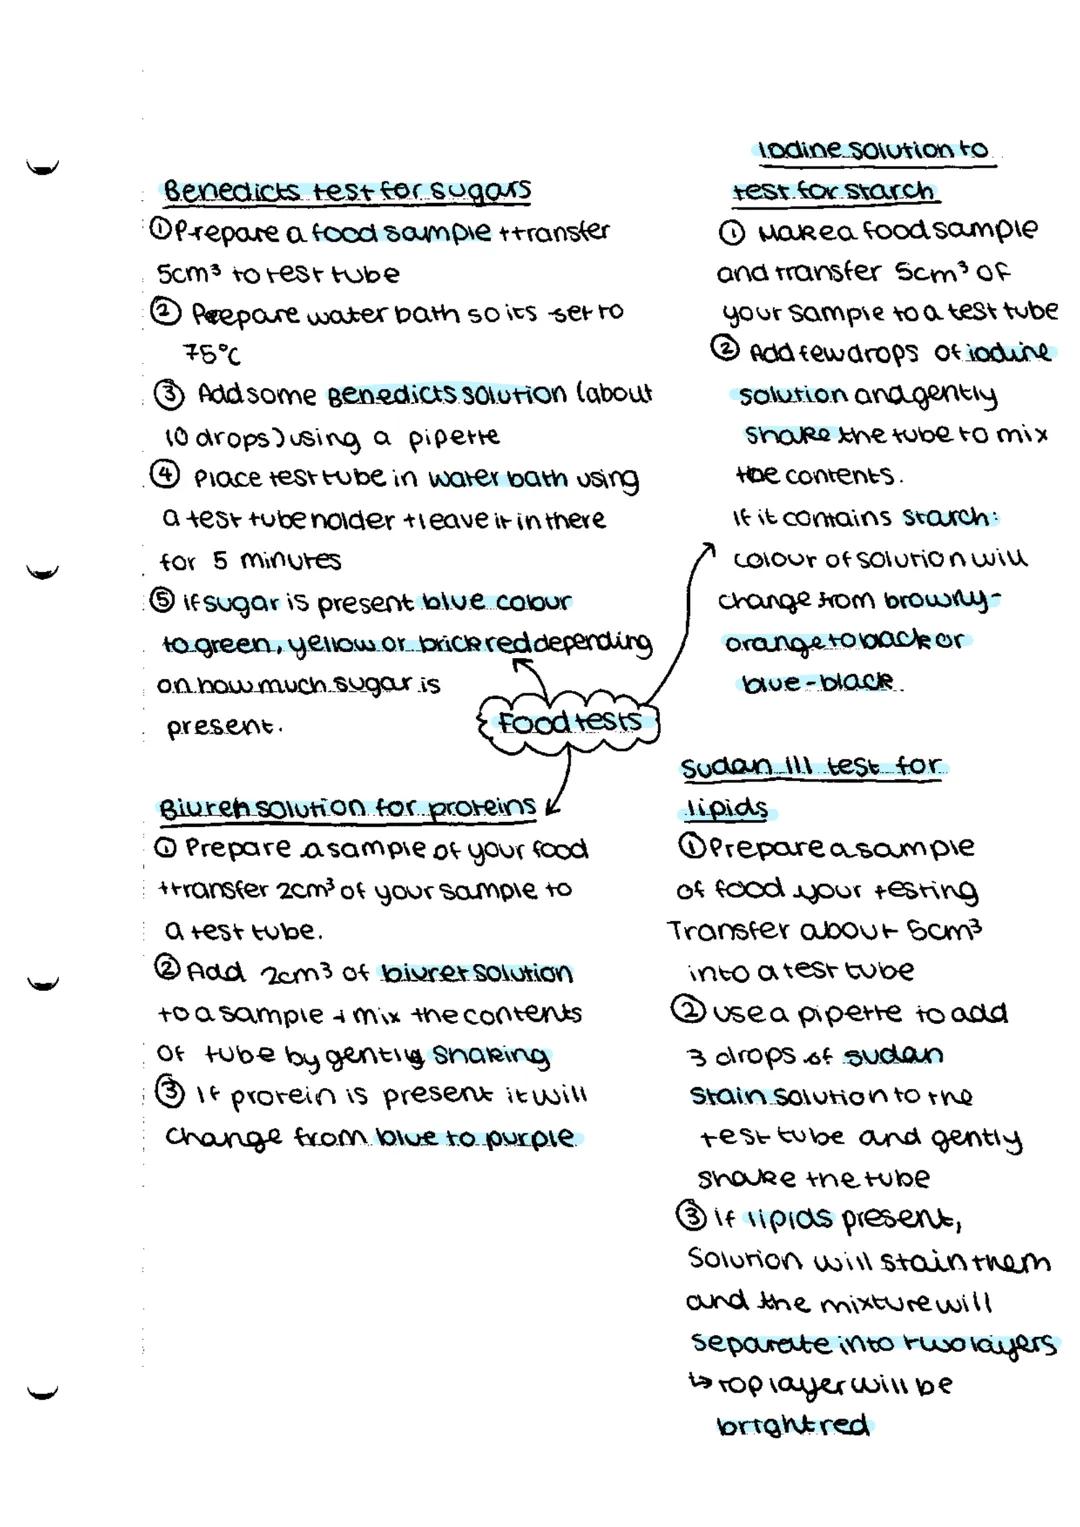 Benedicts test for sugars
① Prepare a food sample + transfer
5cm³ to test tube
② Prepare water bath so its set to
75°C
③ Add some Benedicts solution (about
10 drops) using a pipette
④ Place test tube in water bath using
a test tube holder + leave it in there
for 5 minutes
⑤ if sugar is present blue colour
to green, yellow or brick red depending
on how much sugar is
present.
Iodine solution to
test for starch
① Make a food sample
and transfer 5cm³ of
your sample to a test tube
② Add few drops of iodine
solution and gently
shake the tube to mix
the contents.
If it contains starch:
colour of solution will
change from browny-
orange to back or
blue-black.
Food tests
Biuret solution for proteins
① Prepare a sample of your food
+ transfer 2cm³ of your sample to
a test tube.
② Add 2cm³ of biuret solution
to a sample + mix the contents
of tube by gently shaking
③ If protein is present it will
change from blue to purple
Sudan III test for
lipids
① Prepare a sample
of food your testing
Transfer about 5cm³
into a test tube
② use a pipette to add
3 drops of sudan
stain solution to the
test tube and gently
shake the tube
③ if lipids present,
solution will stain them
and the mixture will
separate into two layers
↳ top layer will be
bright red